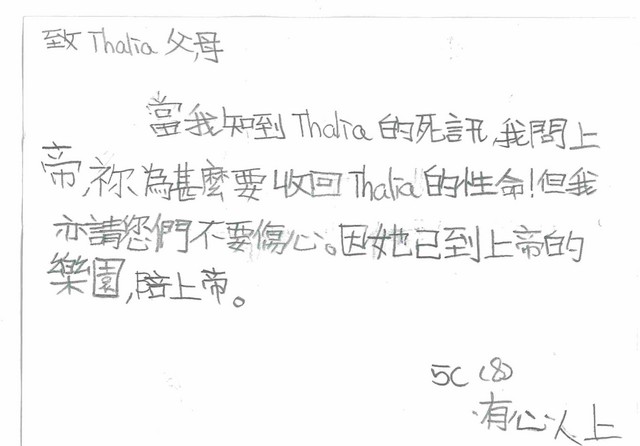 致 Thalia 父母
當我知到 Thalia 的死訊,我問上
帝,祢為甚麼要收回 Thalia 的性命!但我
亦請您們不要傷心。因她已到上帝的
樂園,陪上帝。
5C (8)
有心人上